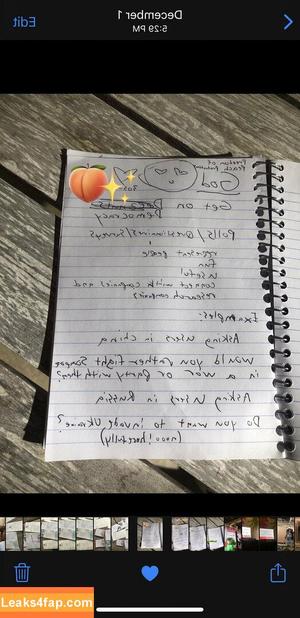 December 1
Edit
5:29 PM
Freedom of
God
Get on
Democracy
Polls / Questionnaires / Surveys
represent people
fun
useful
connect with companies and
research companies
Examples:
Asking users in china
would you rather fight
in a war or party with them?
Asking users in Russia
Do you want to invade Ukraine?
Leaks4fap.com